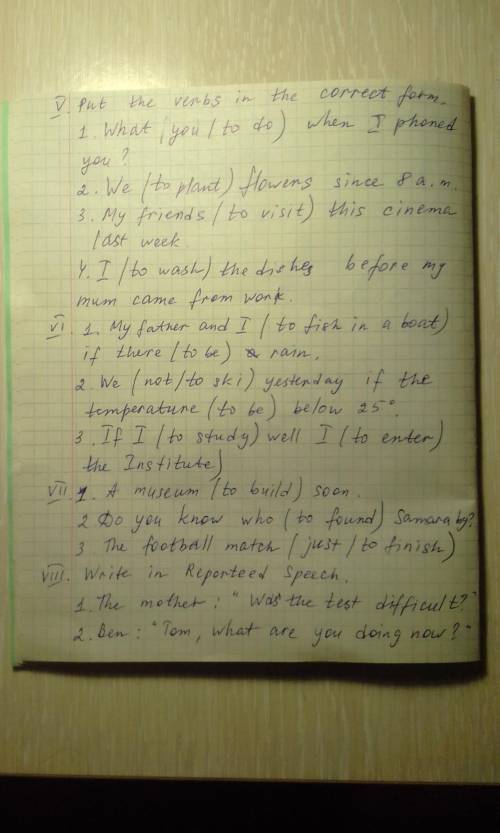 V. Put the verbs in the correct form.
1. What (you / to do) when I phoned
you?
2. We (to plant) flowers since 8 a.m.
3. My friends (to visit) this cinema
last week.
4. I (to wash) the dishes before my
mum came from work.
VI. 1. My father and I (to fish in a boat)
if there (to be) rain.
2. We (not/to ski) yesterday if the
temperature (to be) below 25°.
3. If I (to study) well I (to enter)
the Institute)
VII. 1. A museum (to build) soon.
2 Do you know who (to found) Samara by?
3 The football match (just/to finish)
VIII. Write in Reporteed Speech.
1. The mother: "Was the test difficult?"
2. Ben: "Tom, what are you doing now?"